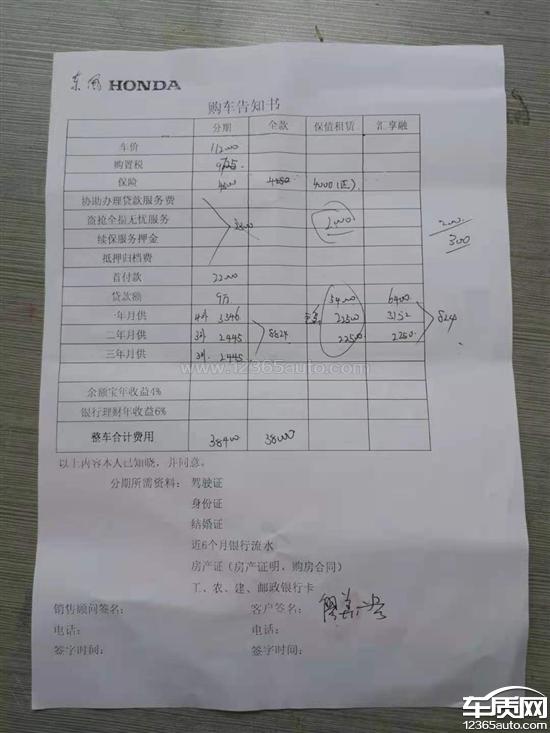 东风 HONDA
购车告知书
分期 全款 保值租赁 汇享融
车价 112000
购置税
保险 4800 4850 4000(正)
协助办理贷款服务费
盗抢全损无忧服务 3800 2000
续保服务押金 300
抵押归档费
首付款 22000
贷款额 9万 5400 6400
一年月供 3346 2250 3152 8824
二年月供 2445 8824 2250 2250
三年月供 2445
www.12365auto.com
余额宝年收益4%
银行理财年收益6%
整车合计费用 38400 38000
以上内容本人已知晓，并同意。
分期所需资料： 驾驶证
身份证
结婚证
近6个月银行流水
房产证（房产证明，购房合同）
工、农、建、邮政银行卡
销售顾问签名： 客户签名：
电话： 电话：
签字时间： 签字时间：
车质网
12365auto.com